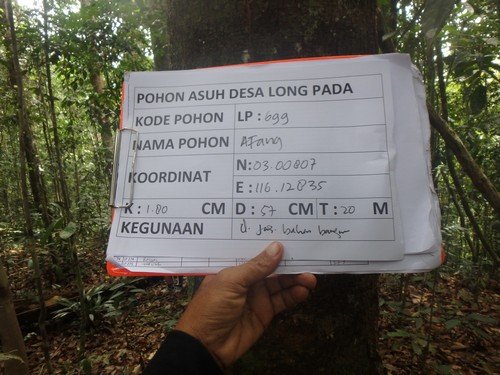 POHON ASUH DESA LONG PADA
KODE POHON LP : 699
NAMA POHON Afang
KOORDINAT N: 03.00807
E : 116.12835
K : 1.80 CM D : 57 CM T : 20 M
KEGUNAAN bahan